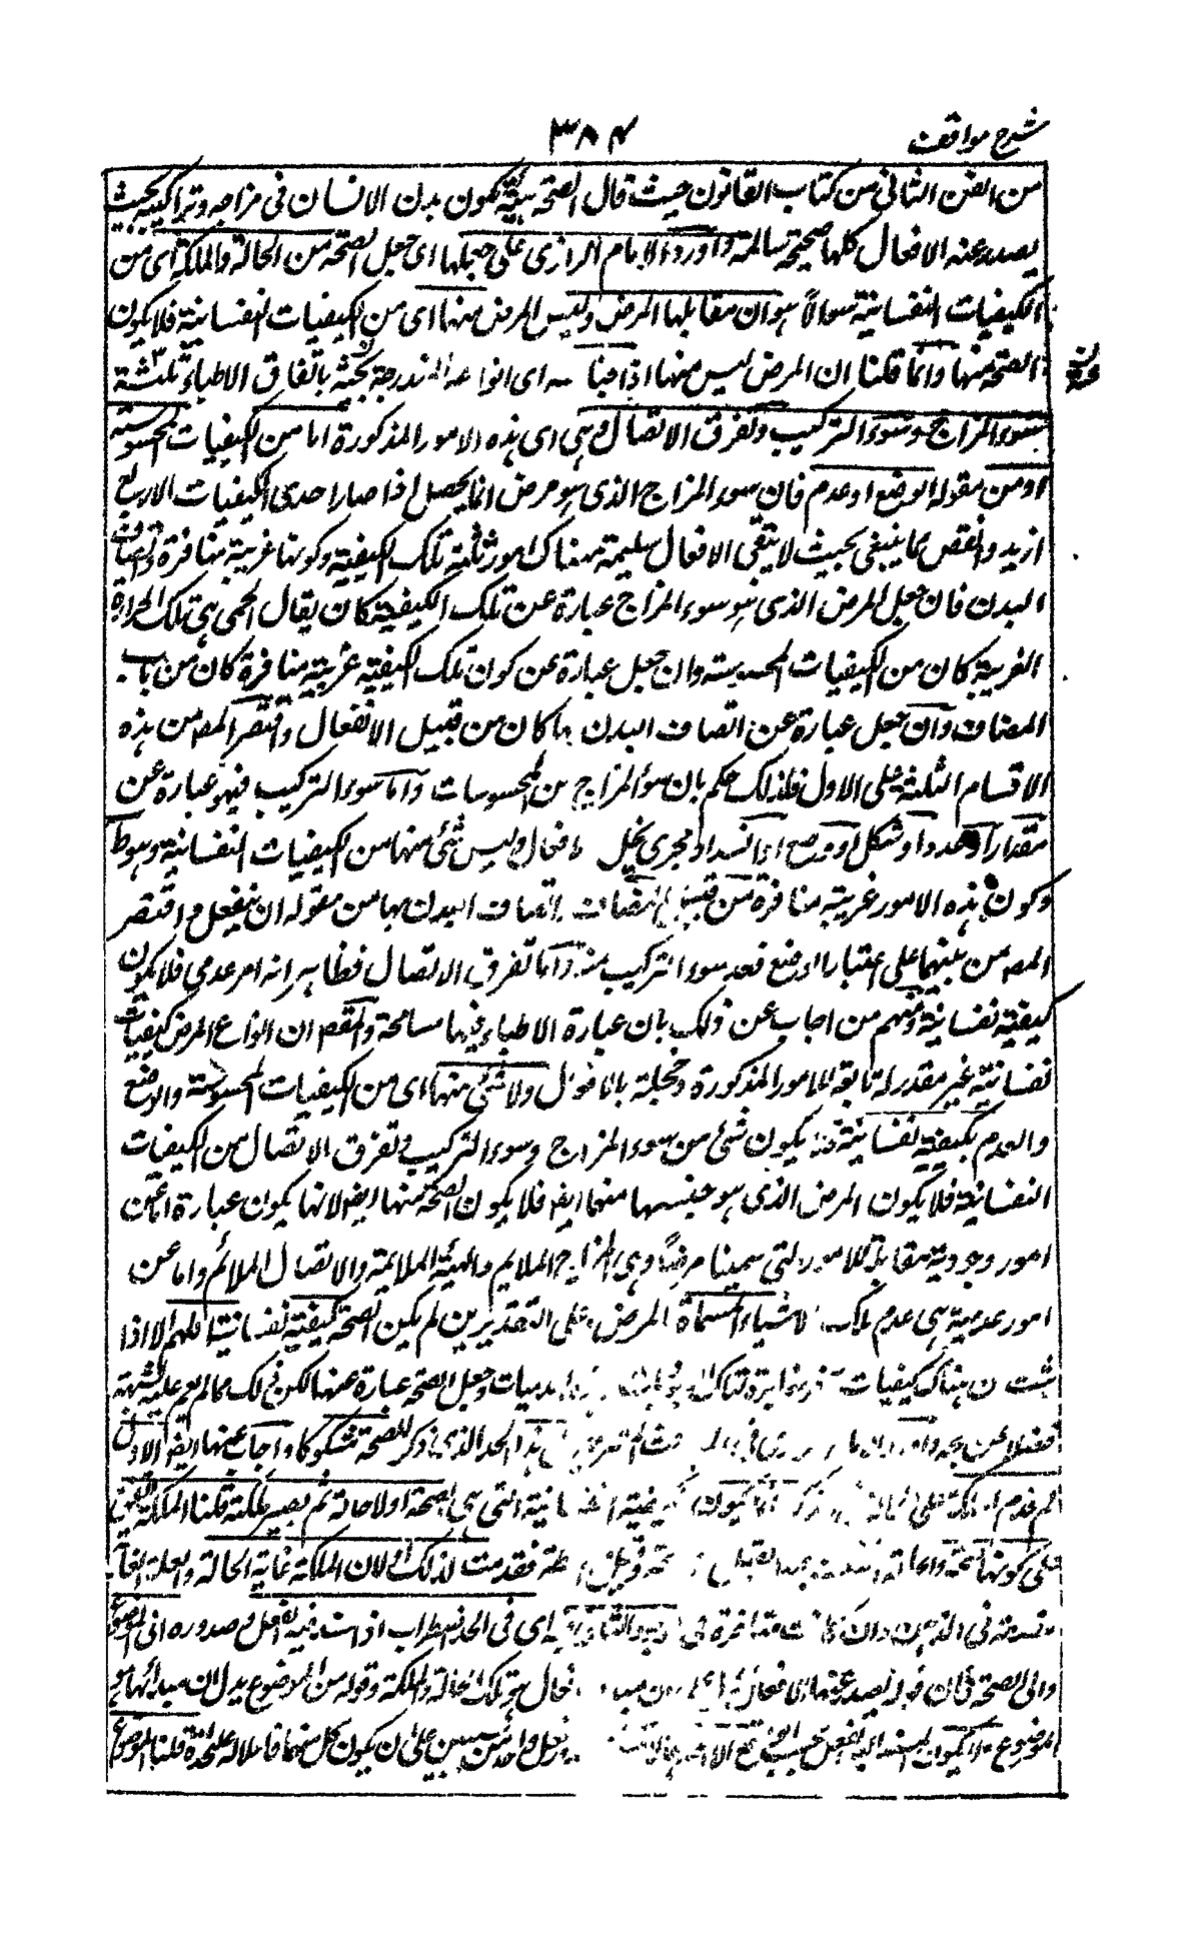 شرح مواقف
٣٨٤
من الفن الثانى من كتاب القانون حيث قال الصحة هيئة يكون بدن الانسان فى مزاجه وتراكيبه بحيث
يصدر عنه الافعال كلها صحيحة سالمة واورد الامام الرازى على جعلها اى جعل الصحة من الحالة والملكة اى من
الكيفيات النفسانية سوالا هو ان مقابلها المرض وليس المرض منها اى من الكيفيات النفسانية فلا يكون
الصحة منها وانما قلنا ان المرض ليس منها اذ اجناسه اى انواعه المندرجة تحته باتفاق الاطباء ثلثة
سوء المزاج وسوء التركيب وتفرق الاتصال وهى اى هذه الامور المذكورة اما من الكيفيات المحسوسة
او من مقولة الوضع او عدم فان سوء المزاج الذى هو مرض انما يحصل اذا صار احدى الكيفيات الاربع
ازيد وانقص مما ينبغى بحيث لا يبقى الافعال سليمة فهناك امور ثلثة تلك الكيفية وكونها غريبة منافرة واتصاف
البدن فان جعل المرض الذى هو سوء المزاج عبارة عن تلك الكيفية كان يقال الحمى هى تلك الحرارة
الغريبة كان من الكيفيات المحسوسة وان جعل عبارة عن كون تلك الكيفية غريبة منافرة كان من باب
المضاف وان جعل عبارة عن اتصاف البدن بها كان من قبيل الانفعال واقتصر المصـ من هذه
الاقسام الثلثة على الاول فلذلك حكم بان سوء المزاج من المحسوسات واما سوء التركيب فهو عبارة عن
مقدار او عدد او شكل او وضع او انسداد مجرى يخل بالافعال وليس شئ منها من الكيفيات النفسانية وهو ظ
وكون هذه الامور غريبة منافرة من قبيل المضاف واتصاف البدن بها من مقولة ان ينفعل واقتصر
المصـ من بينها على اعتبار الوضع فعد سوء التركيب منه واما تفرق الاتصال فظاهر انه امر عدمى فلا يكون
كيفية نفسانية ومنهم من اجاب عن ذلك بان عبارة الاطباء فيها مسامحة والمقصـ ان انواع المرض كيفيات
نفسانية غير مقدرة تابعة للامور المذكورة ومخلة بالافعال ولا شئ منها اى من الكيفيات المحسوسة والوضع
والعدم بكيفية نفسانية فلا يكون شئ من سوء المزاج وسوء التركيب وتفرق الاتصال من الكيفيات
النفسانية فلا يكون المرض الذى هو جنسها منها ايضا فلا يكون الصحة منها ايضا لانها يكون عبارة اما عن
امور وجودية مقابلة للامور التى سمينا مرضا وهى المزاج الملايم والهيئة الملايمة والاتصال الملائم واما عن
امور عدمية هى عدم تلك الاشياء المسماة بالمرض وعلى التقديرين لم يكن الصحة كيفية نفسانية اللهم الا اذا
ثبت ان هناك كيفيات مغايرة لتلك العدميات وجعل الصحة عبارة عنها لكن ذلك مما لم يقم عليه شبهة
فضلا عن حجة هذا الحد الذى ذكر للصحة شكوكا واجاب عنها ايضا الاول
لم قدم الملكة على الحالة انما يكون الكيفية النفسانية التى هى الصحة اولا حالة ثم يصير ملكة قلنا الملكة اتفق
على كونها صحة والحالة فقدمت لذلك او لان الملكة غاية الحالة والعلة الغائية
متقدمة فى الذهن وان كانت متأخرة فى الوجود والثانى فيه اى فى الحد اضطراب اذ اسند فيه الفعل وصدوره الى الموضوع
والى الصحة فان قوله يصدر عنها الافعال الافعال هو تلك الحالة والملكة وقوله من الموضوع يدل ان مبدأها هو
الموضوع على ان يكون كل منهما فاعلا له على حدة قلنا الموضوع